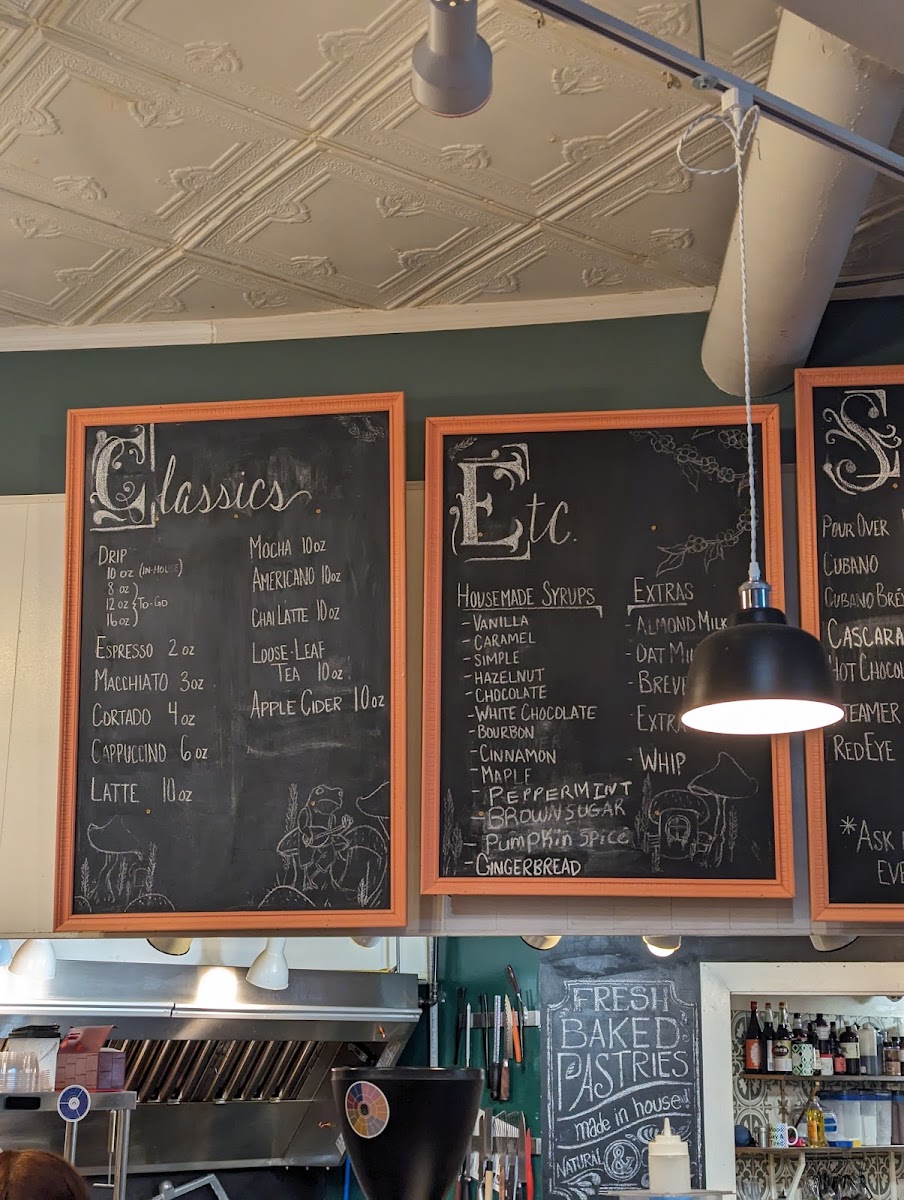 Classics
DRIP
10 OZ (IN-HOUSE)
8 OZ
12 OZ TO-GO
16 OZ
ESPRESSO 2 OZ
MACCHIATO 3 OZ
CORTADO 4 OZ
CAPPUCCINO 6 OZ
LATTE 10 OZ
MOCHA 10 OZ
AMERICANO 10 OZ
CHAI LATTE 10 OZ
LOOSE-LEAF
TEA 10 OZ
APPLE CIDER 10 OZ
Etc.
HOUSEMADE SYRUPS
- VANILLA
- CARAMEL
- SIMPLE
- HAZELNUT
- CHOCOLATE
- WHITE CHOCOLATE
- BOURBON
- CINNAMON
- MAPLE
- PEPPERMINT
- BROWN SUGAR
- Pumpkin Spice
- GINGERBREAD
EXTRAS
- ALMOND MILK
- OAT MI
- BREVE
- EXTR
- WHIP
S
POUR OVER
CUBANO
CUBANO BREV
CASCARA
HOT CHOCOL
STEAMER
RED EYE
*ASK
EVE
FRESH
BAKED
PASTRIES
made in house
NATURAL &